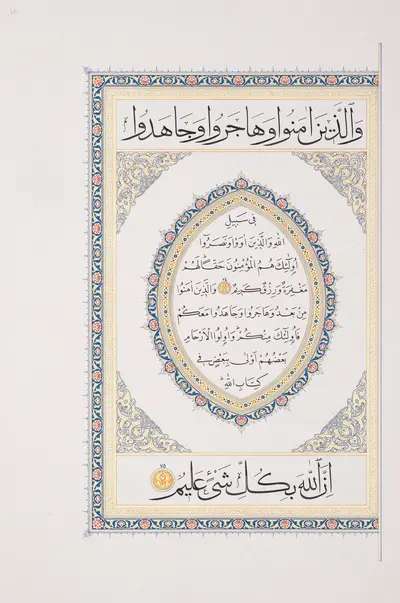 وَالَّذِينَ اٰمَنُوا وَهَاجَرُوا وَجَاهَدُوا
فِي سَبِيلِ
اللّٰهِ وَالَّذِينَ اٰوَوْا وَنَصَرُوا
أُولٰئِكَ هُمُ الْمُؤْمِنُونَ حَقًّا لَهُمْ
مَغْفِرَةٌ وَرِزْقٌ كَرِيمٌ ٧٤ وَالَّذِينَ اٰمَنُوا
مِنْ بَعْدُ وَهَاجَرُوا وَجَاهَدُوا مَعَكُمْ
فَأُولٰئِكَ مِنْكُمْ وَأُولُوا الْأَرْحَامِ
بَعْضُهُمْ أَوْلٰى بِبَعْضٍ فِي
كِتَابِ اللّٰهِ
إِنَّ اللّٰهَ بِكُلِّ شَيْءٍ عَلِيمٌ ٧٥